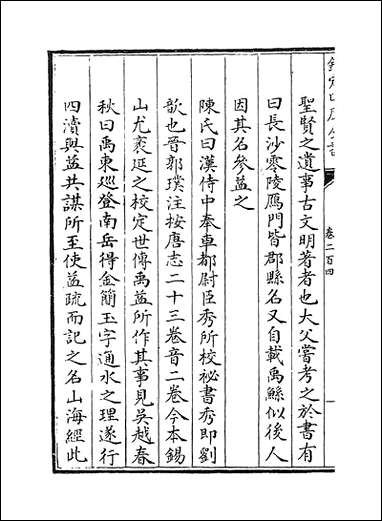 欽定四庫全書
卷二百四
聖賢之遺事古文明著者也大父嘗考之於書有
曰長沙零陵鴈門皆郡縣名又自載禹鯀似後人
因其名參益之
陳氏曰漢侍中奉車都尉臣秀所校祕書秀即劉
歆也晉郭璞注按唐志二十三卷音二卷今本錫
山尤袤延之校定世傳禹益所作其事見吳越春
秋曰禹東巡登南岳得金簡玉字通水之理遂行
四瀆與益共謀所至使益疏而記之名山海經此